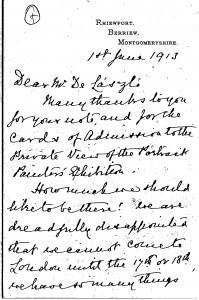 Rhiewport,
Berriew,
Montgomeryshire.
1st June 1913
Dear Mr De László
Many thanks to you
for your note, and for the
Cards of Admission to the
Private View of the Portrait
Painters' Exhibition.
How much we should
like to be there! We are
dreadfully disappointed
that we cannot come to
London until the 17th or 18th
we have so many things